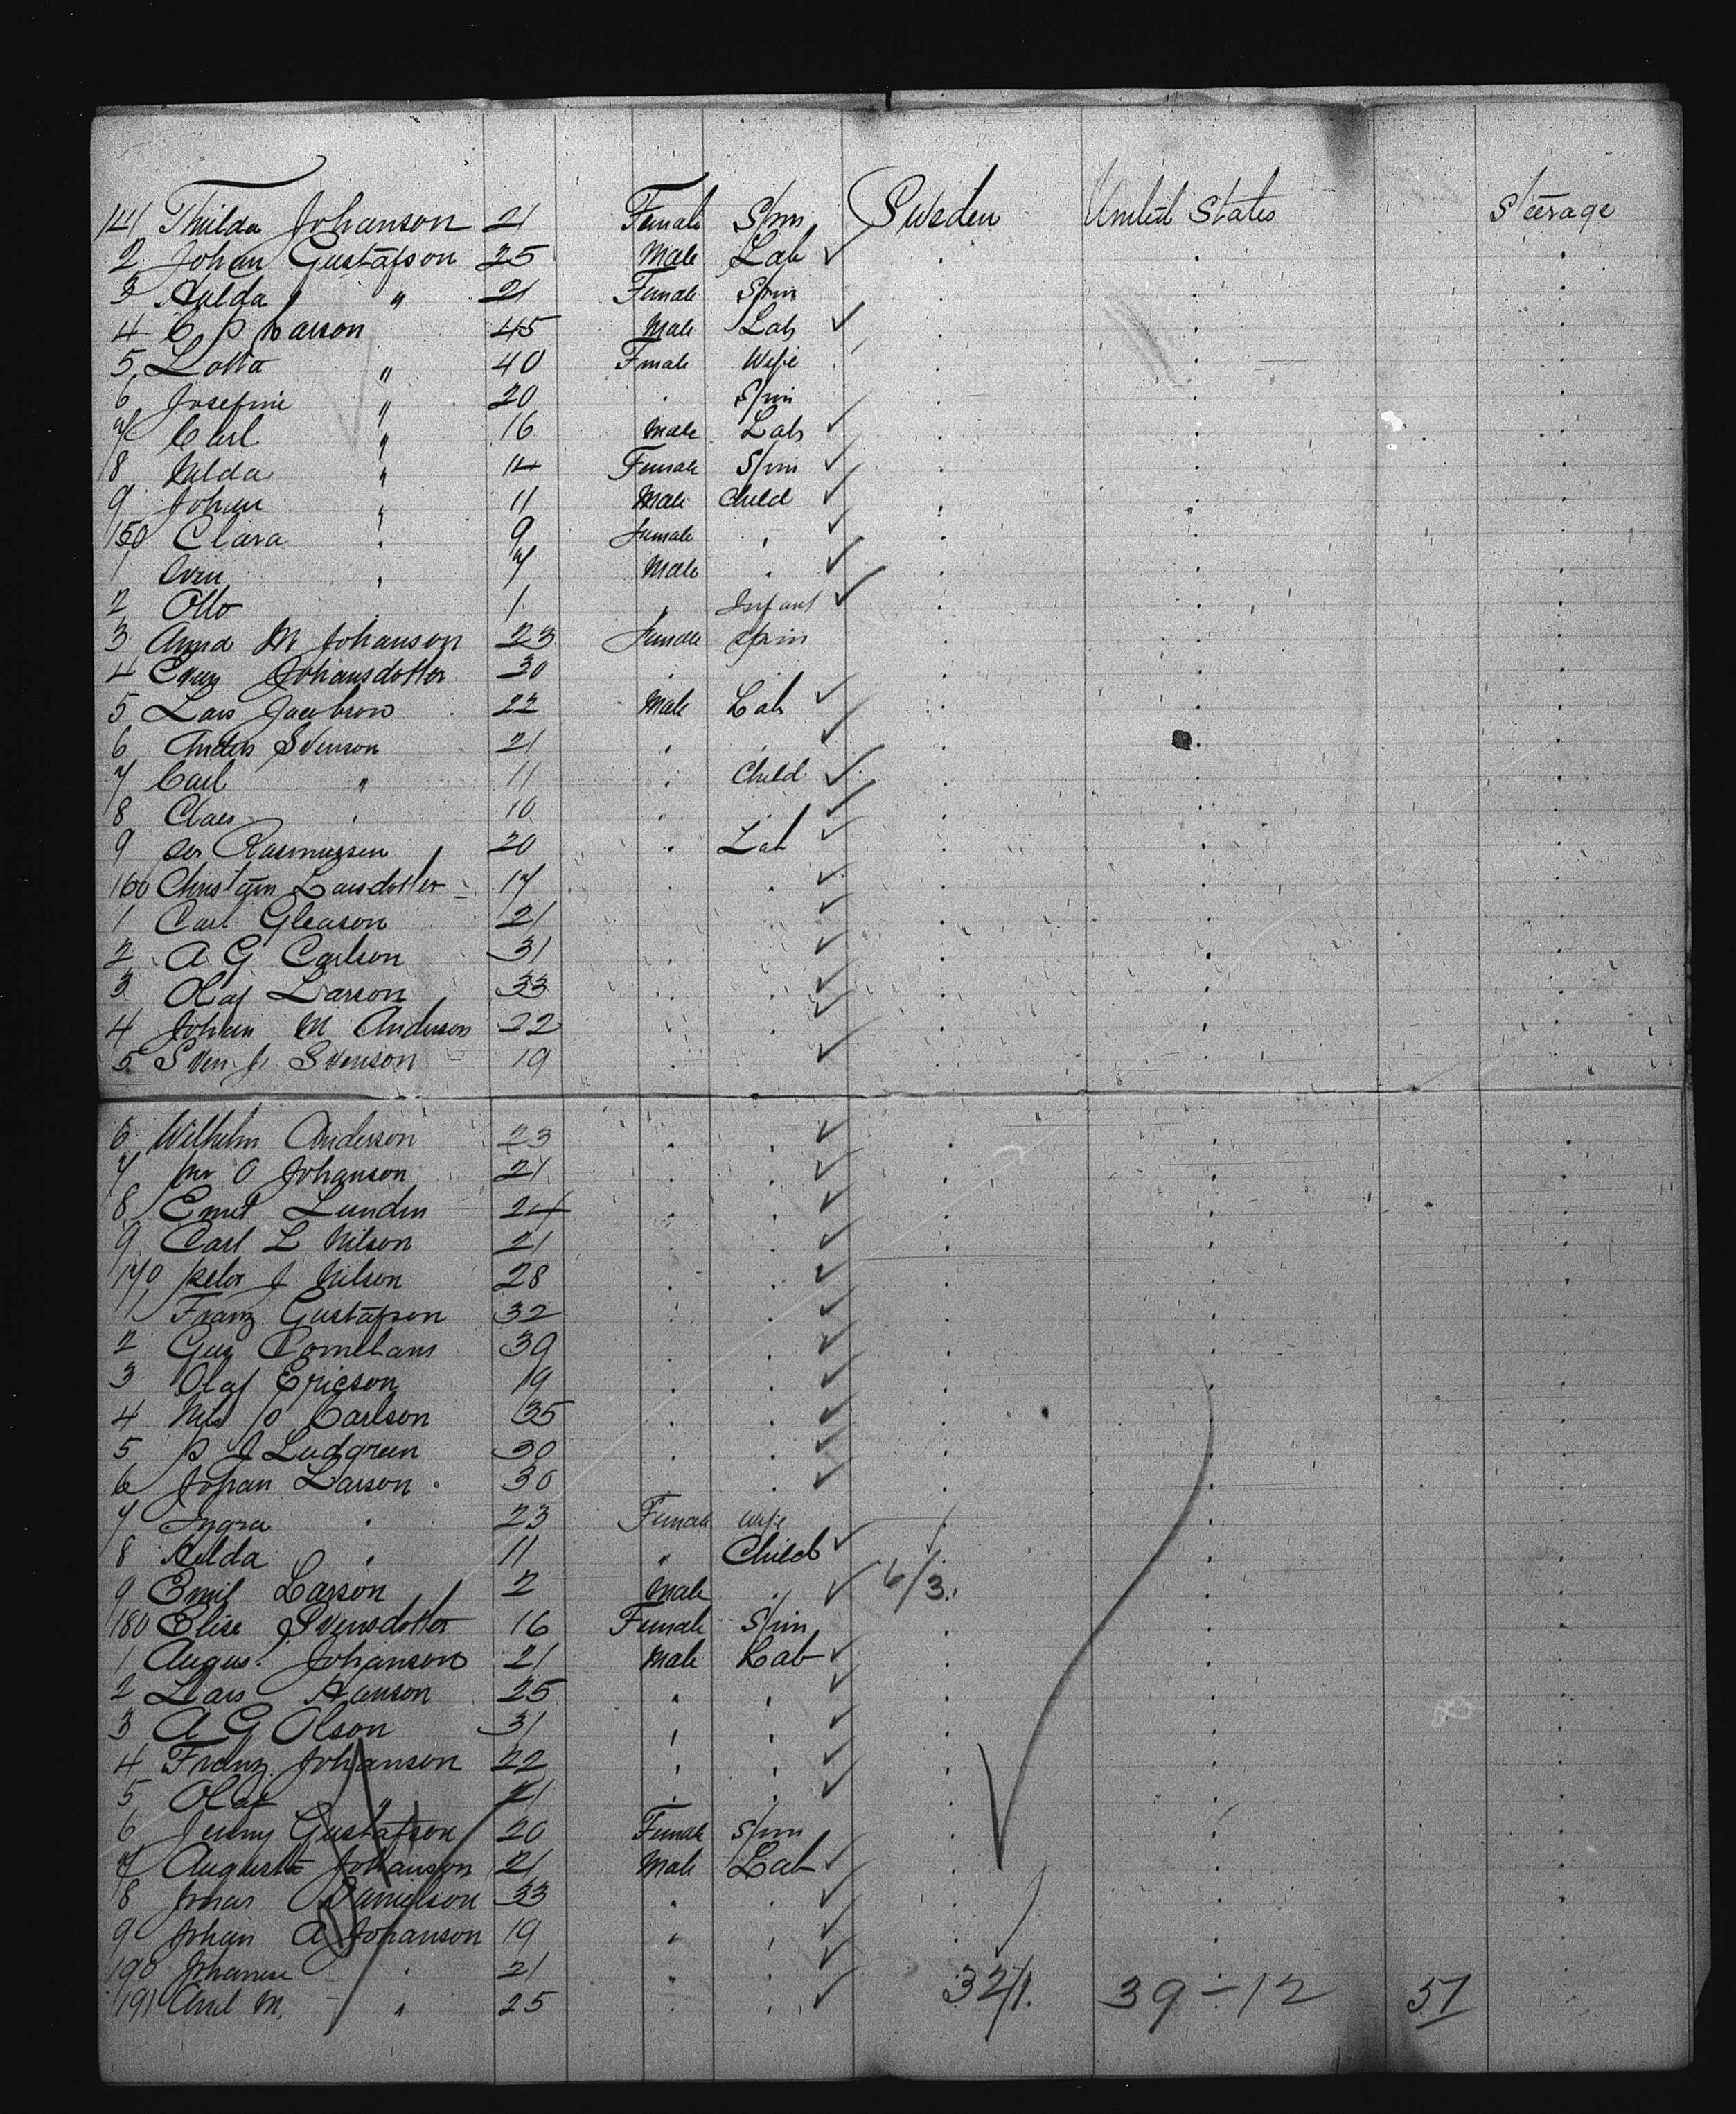 141 Thilda Johanson 21 Female Spin Sweden United States Steerage
2 Johan Gustafson 25 Male Lab ✓ . . .
3 Hilda " 21 Female Spin . . .
4 C P Larson 45 Male Lab ✓ . . .
5 Lotta " 40 Female Wife . . .
6 Josefine " 20 . Spin . . .
7 Carl " 16 Male Lab ✓ . . .
8 Hulda " 14 Female Spin ✓ . . .
9 Johan " 11 Male Child ✓ . . .
150 Clara " 9 Female " ✓ . . .
1 Sven " 7 Male . ✓ . . .
2 Otto . 1 " Infant ✓ . . .
3 Anna M Johanson 23 Female Spin . . .
4 Johansdotter 30 . . . . .
5 Lars Jacobson 22 Male Lab ✓ . . .
6 Anders Svenson 21 . . ✓ . . .
7 Carl " 11 . Child ✓ . . .
8 Claes " 10 . . ✓ . . .
9 Rasmussen 20 . Lab ✓ . . .
160 Larsdotter 17 . . ✓ . . .
1 Carl Gleason 21 . . ✓ . . .
2 A G Carlson 31 . . ✓ . . .
3 Olaf Larson 33 . . ✓ . . .
4 Johan M Anderson 22 . . ✓ . . .
5 Sven J Svenson 19 . . ✓ . . .
6 Wilhelm Anderson 23 . . ✓ . . .
7 O Johanson 21 . . ✓ . . .
8 Emil Lundin 24 . . ✓ . . .
9 Carl L Nilson 21 . . ✓ . . .
170 Peter J Nilson 28 . . ✓ . . .
1 Franz Gustafson 32 . . ✓ . . .
2 Gus 39 . . ✓ . . .
3 Olaf Ericson 19 . . ✓ . . .
4 Nils P Carlson 35 . . ✓ . . .
5 P J Ludgren 30 . . ✓ . . .
6 Johan Larson 30 . . ✓ . . .
7 Ingra " 23 Female Wife . . .
8 Hilda " 11 " Child ✓ . . .
9 Emil Larson 2 Male " ✓ 6/3 . .
180 Elise Svensdotter 16 Female Spin . . .
1 August Johanson 21 Male Lab ✓ . . .
2 Lars Hanson 25 " " ✓ . . .
3 A G Olson 31 " " ✓ . . .
4 Franz Johanson 22 " " ✓ . . .
5 Olaf " 21 . . ✓ . . .
6 Jenny Gustafson 20 Female Spin . . .
7 August Johanson 21 Male Lab ✓ . . .
8 Danielson 33 " . ✓ . . .
9 Johan A Johanson 19 " " ✓ . . .
190 " 21 " . ✓ . . .
191 M. " 25 . . ✓ 32/1. 39-12 51